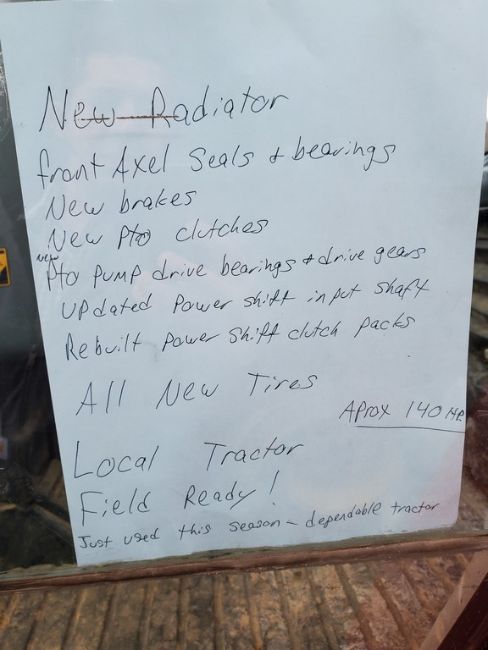 New Radiator
front Axel Seals & bearings
New brakes
New Pto clutches
new
Pto pump drive bearings & drive gears
updated Power shift input shaft
Rebuilt power shift clutch packs
All New Tires
Aprox 140 HP
Local Tractor
Field Ready!
Just used this season - dependable tractor